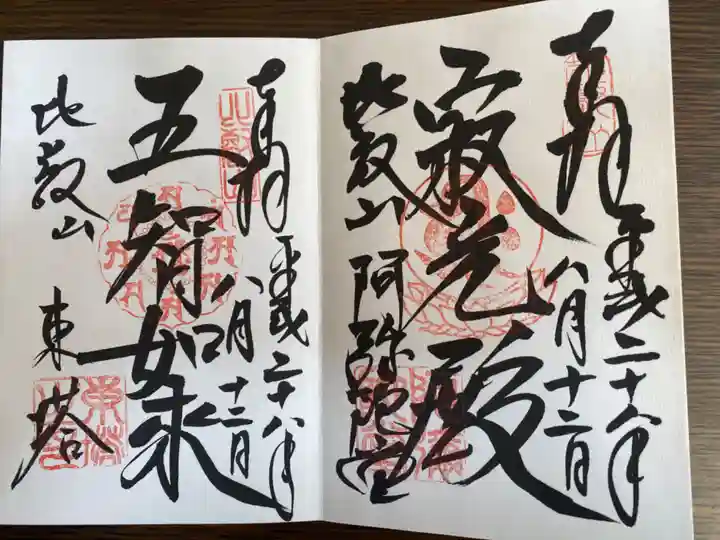 奉拝
平成二十八年
八月十二日
寂光殿
比叡山 阿弥陀堂
奉拝
平成二十八年
八月十二日
五智如来
比叡山 東塔